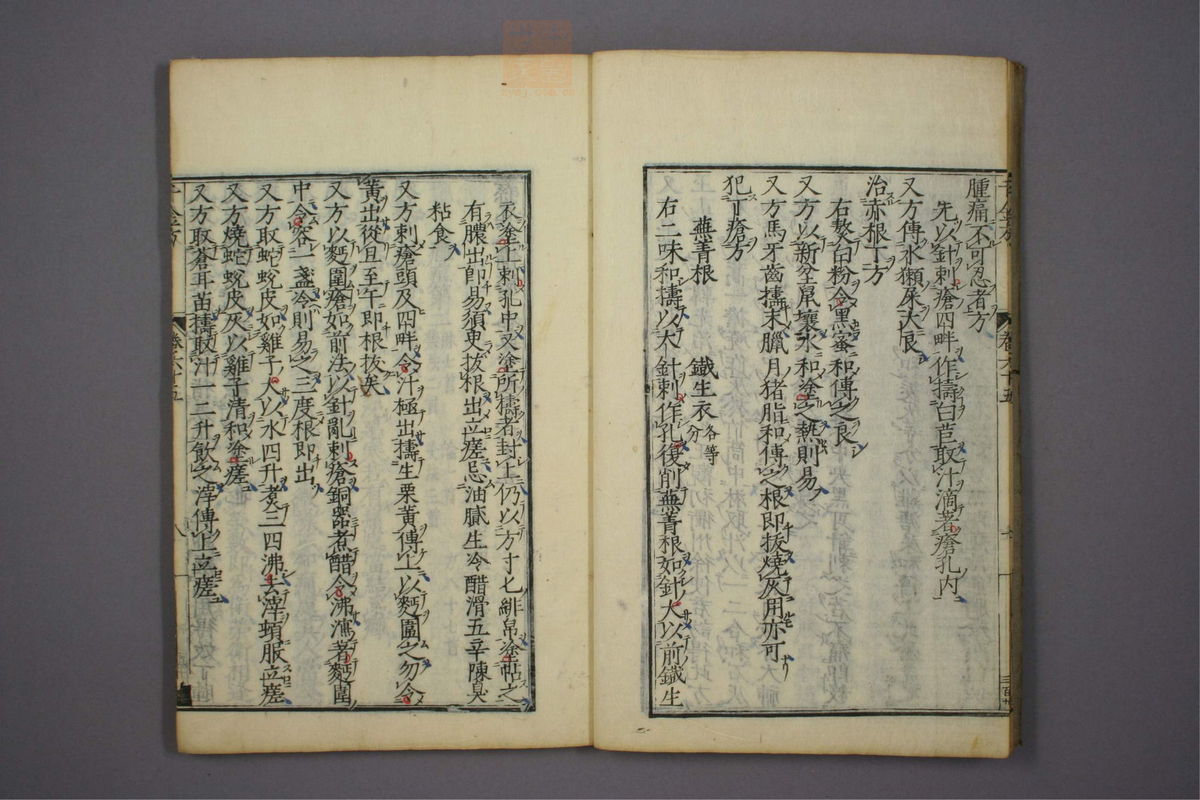 腫痛不可忍者方
先以針刺瘡四畔作擣白苣取汁滴著瘡孔内
又方傅水獺屎大良
治赤根丁方
右熬白粉令黒蜜和傅之良
又方以新坌鼠壤水和塗之熱則易
又方馬牙齒擣末臘月猪脂和傅之根即拔燒灰用亦可
犯丁瘡方
蕪菁根 鐵生衣各等分
右二味和擣以大針刺作孔復削蕪菁根如針大以前鐵生
衣塗上刺孔中又塗所擣者封上仍以方寸匕緋帛塗帖之
有膿出即易須臾拔根出立瘥忌油膩生冷醋滑五辛陳臭
粘食
又方刺瘡頭及四畔令汁極出擣生栗黄傅上以麪圍之勿令
黄出從旦至午即根拔矣
又方以麪圍瘡如前法以針亂刺瘡銅器煮醋令沸瀉著麪圍
中令容一盞冷則易之三度根即出
又方取蛇蛻皮如雞子大以水四升煮三四沸去滓頓服立瘥
又方燒蛇蛻皮灰以雞子清和塗瘥
又方取蒼耳苗擣取汁一二升飲之滓傅上立瘥